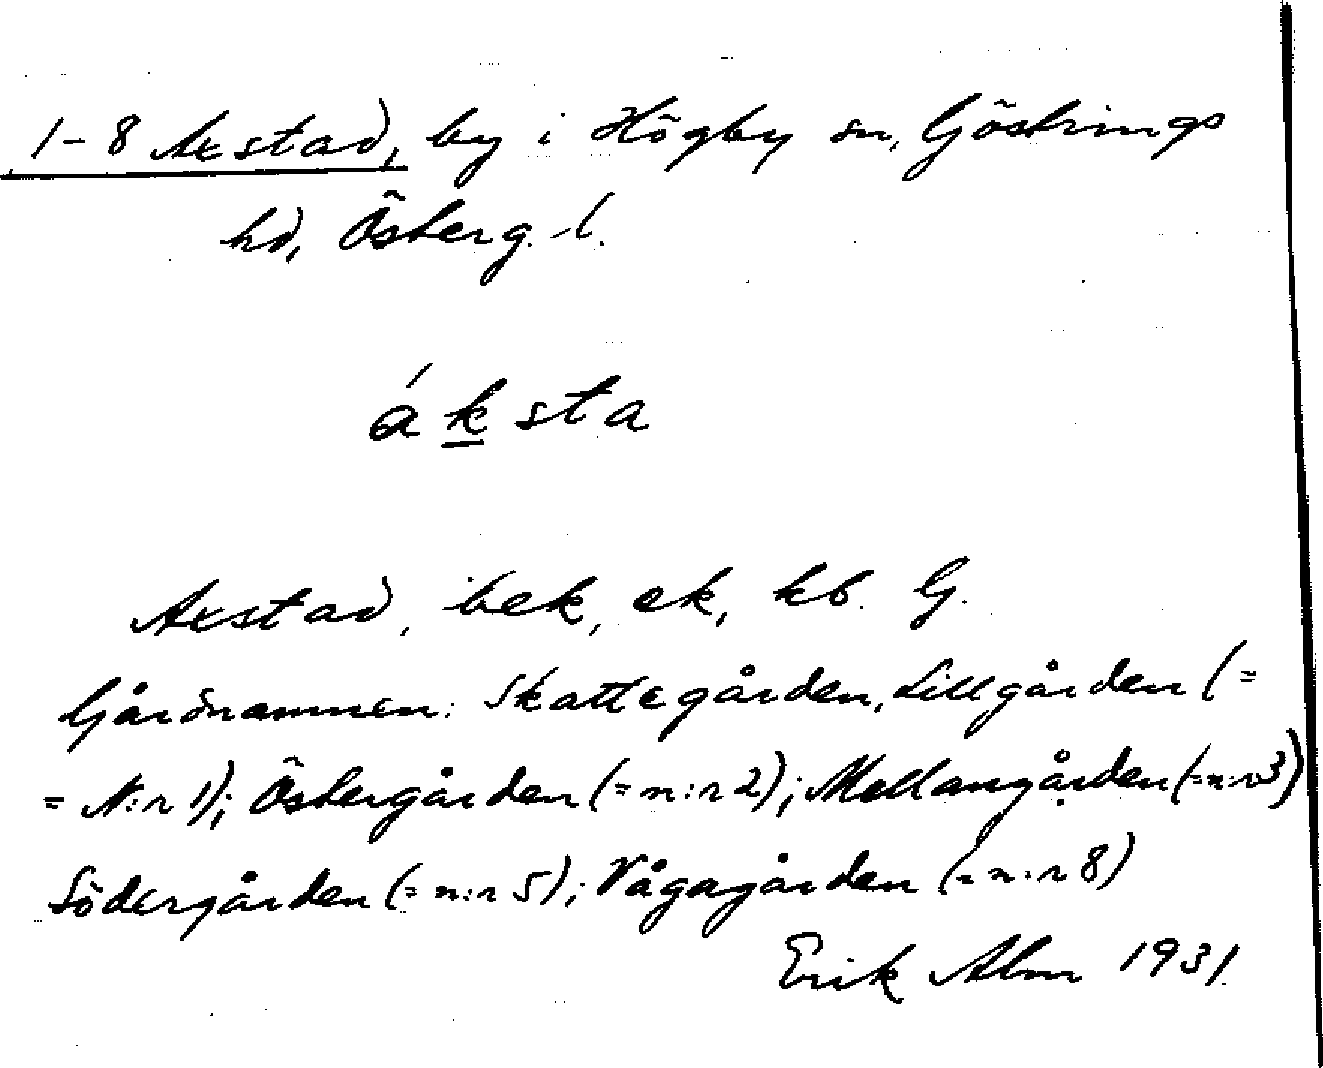 1-8 Axstad, by i Högby sn, Göstrings
hd, Österg. l.
áksta
Axstad, bek, ek, kb. G.
Gårdnamnen: Skattegården, Lillgården (=
= N:r 1); Östergården (= n:r 2); Mellangården (= n:r 3)
Södergården (= n:r 5); Vågagården (= n:r 8)
Erik Alm 1931.